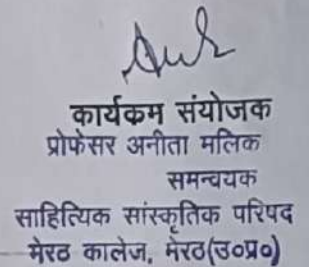 कार्यकम संयोजक
प्रोफेसर अनीता मलिक
समन्वयक
साहित्यिक सांस्कृतिक परिषद
मेरठ कालेज, मेरठ(उ०प्र०)